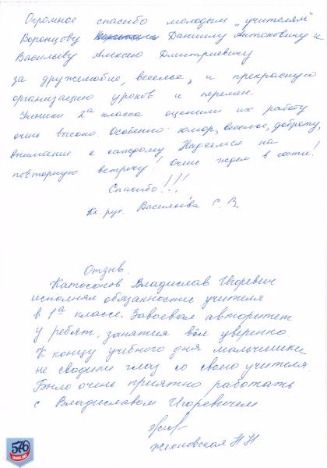 Огромное спасибо молодым "учителям"
Воронцову Даниилу Антоновичу и
Васильеву Алексею Дмитриевичу
за дружелюбие, веселое, и прекрасную
организацию уроков и перемен.
Ученики 2а класса оценили их работу
очень высоко. Особенно юмор, веселье, доброту,
внимание к каждому. Надеемся на
повторную встречу! Очень ждем в гости!
Спасибо!!!
Кл. рук. Васильева С. В.
Отзыв.
Владислав Игоревич
исполнял обязанности учителя
в 1а классе. Завоевал авторитет
у ребят, занятия вёл уверенно
К концу учебного дня мальчишки
не сводили глаз со своего учителя.
Было очень приятно работать
с Владиславом Игоревичем
Н.Н
576